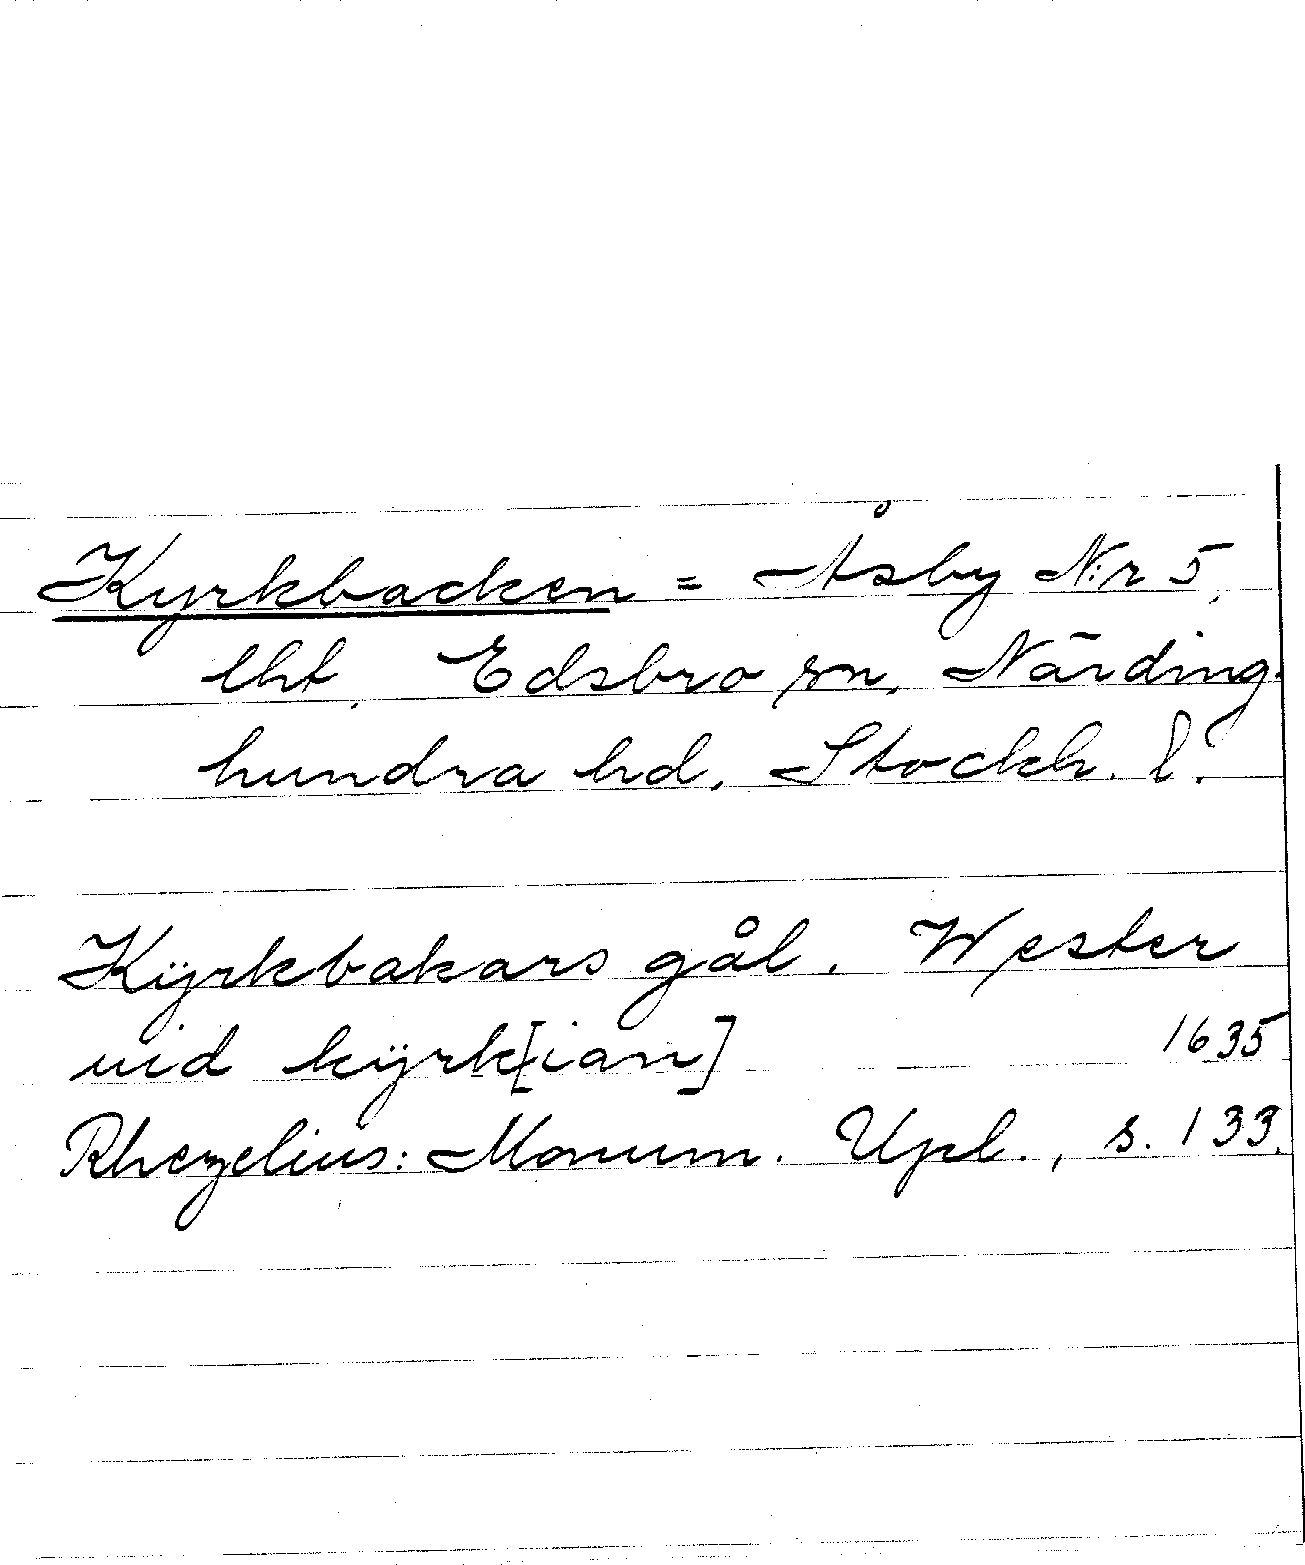 Kyrkbacken = Åsby N:r 5,
lht, Edsbro sn, Närding-
hundra hd, Stockh. l.
Kÿrkbakars gål. Wester
uid kÿrk[ian] 1635
Rhezelius: Monum. Upl., s. 133.